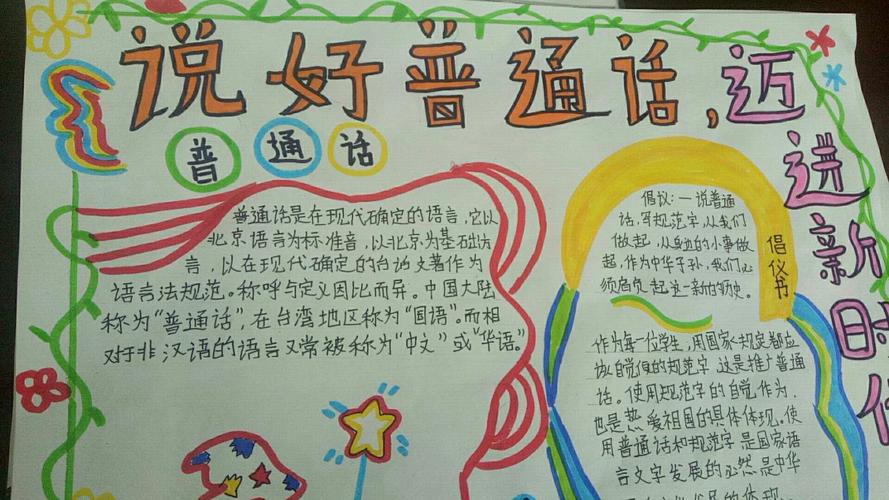 说好普通话,迈进新时代
普通话
普通话是在现代确定的语言,它以
北京语言为标准音,以北京为基础方
言,以在现代确定的台的文著作为
语言法规范。称呼与定义因比而异。中国大陆
称为“普通话”,在台湾地区称为“国语”。而相
对于非汉语的语言又常被称为“中文”或“华语”。
倡议:一说普通
话,写规范字,从我们
做起,从身边的小事做
起,作为中华子孙,我们必
须肩负起这一新的历史。
倡仪书
作为每一位学生,用国家规定都应
该自觉俱的规范字,这是推广普通
话。使用规范字的自觉作为,
也是热爱祖国的具体体现。使
用普通话和规范字是国家语
言文字发展的必然是中华